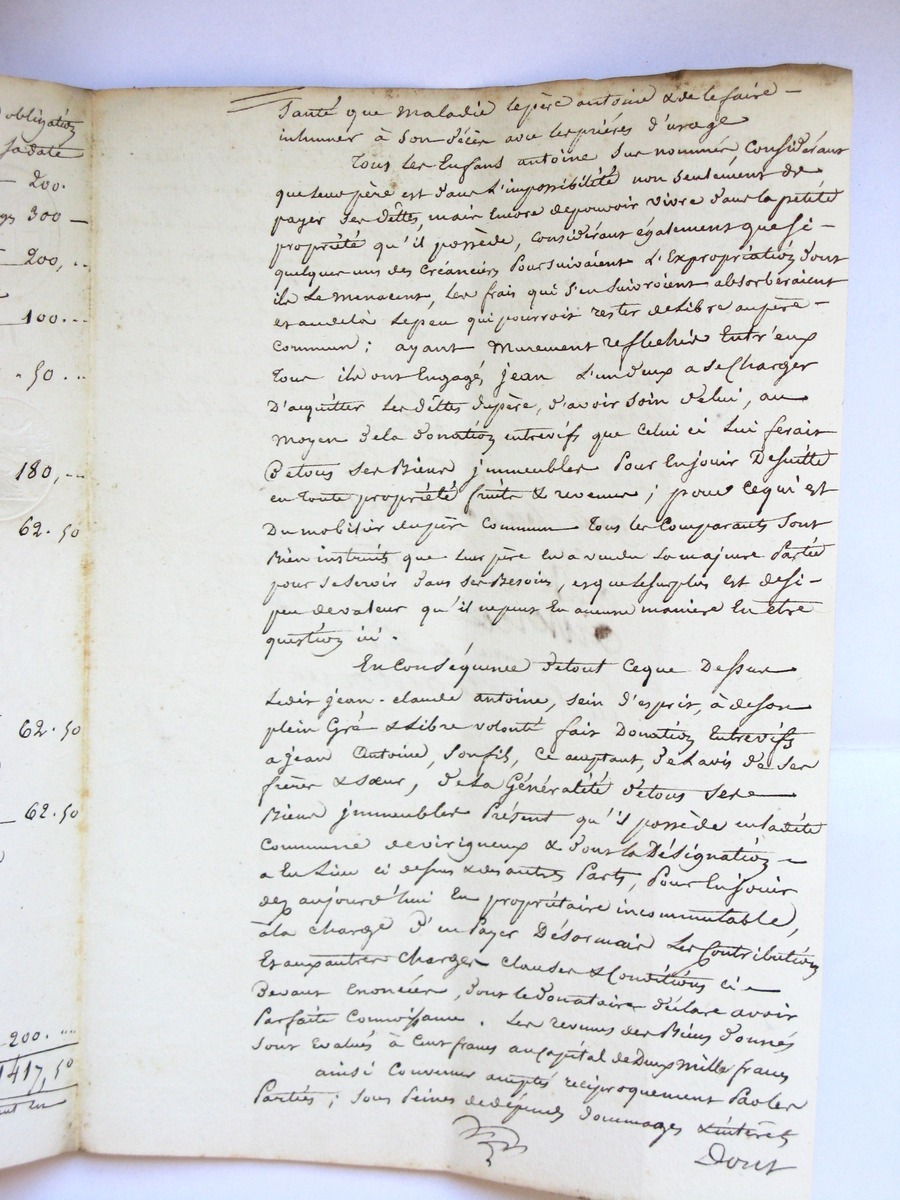 obligation
sa date
200.
300 —
200, ..
100...
50 ..
180, ...
62.50
62.50
62.50
200. ....
1417,50
Santé que maladie le père antoine & de le faire —
inhumer à son décès avec les prières d'usage
Tous les Enfans antoine sus nommés, Considérant
que leur père est dans L'impossibilité non seulement de
payer ses dêttes, mais Encore de pouvoir vivre dans la petite
propriété qu'il possède, Considérant également que si —
quelques uns des Créanciers poursuivaient L'Expropriation dont
ils Le menacent, Les frais qui s'en suivroient absorberaient
et au delà Le peu qui pourroit rester de Libre au père —
Commun ; ayant Murement reflechis Entr'eux
Tous ils ont Engagés jean L'un d'eux a se Charger
D'acquitter Les dêttes du père, d'avoir soin de lui, au
moyen de la donation entrevifs que Celui ci Lui ferait
De tous ses Biens jmmeubles pour En jouir De suitte
en toute propriété fruits & revenus ; pour ce qui est
Du mobilier du père Commun Tous les Comparants Sont
Bien instruits que Leur père En a vendu La majeure Partie
pour se servir dans ses Besoins, et que Le surplus est de si —
peu de valeur qu'il ne peut En aucune manière En être
question ici .
En Conséquence de tout Ceque Dessus
Ledit jean-claude antoine, sein d'esprit, à de son
plein Gré & Libre volonté fait Donation Entrevifs
a jean Antoine, Son fils, Ce acceptant, de L'avis de ses
frères & sœur, de La Généralité de tous ses
Biens jmmeubles Présent qu'il possède en ladite
Commune de virigneux & dont la Désignation —
a Eu Lieu ci dessus & des autres Parts, Pour En jouir
dez aujourd'hui En propriétaire incommutable,
à la charge d'en Payer Désormais Les Contributions
Et aux autres Charges clauses & Conditions ci —
Devant Enoncées, dont le donataire déclare avoir
Parfaite Connoissance . Les revenus des Biens donnés
Sont Evalués à Cent francs au capital de Deux Mille francs
ainsi Convenu accepté réciproquement Par les
Parties ; sous Peines de dépends dommages & intérêts
Dont